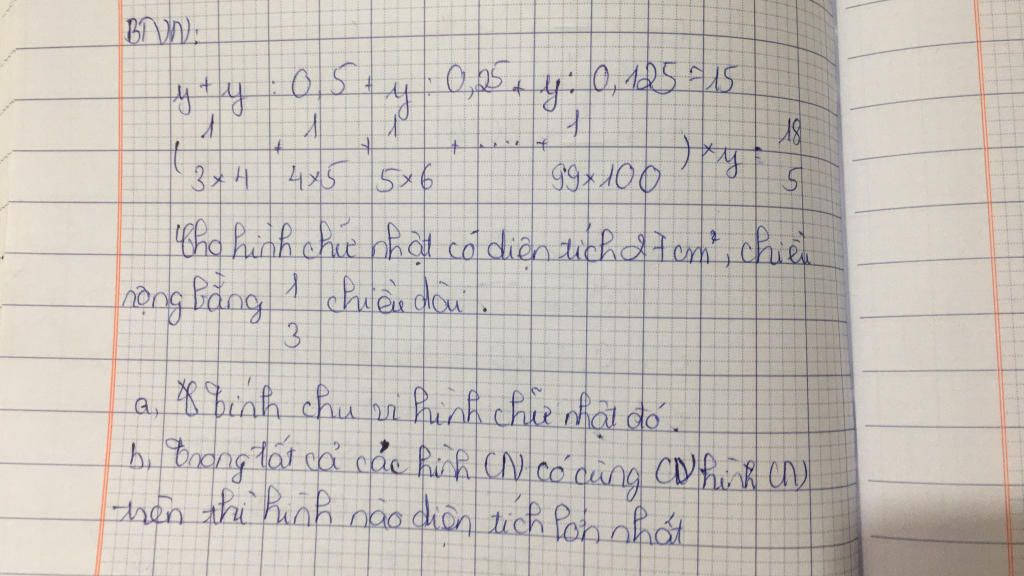 BTVN:
y + y : 0,5 + y : 0,25 + y : 0,125 = 15
( 1/3×4 + 1/4×5 + 1/5×6 + .... + 1/99×100 ) × y = 18/5
Cho hình chữ nhật có diện tích 27cm², chiều
rộng bằng 1/3 chiều dài.
a, Tính chu vi hình chữ nhật đó.
b, Trong tất cả các hình CN có cùng CV hình CN
trên thì hình nào diện tích lớn nhất